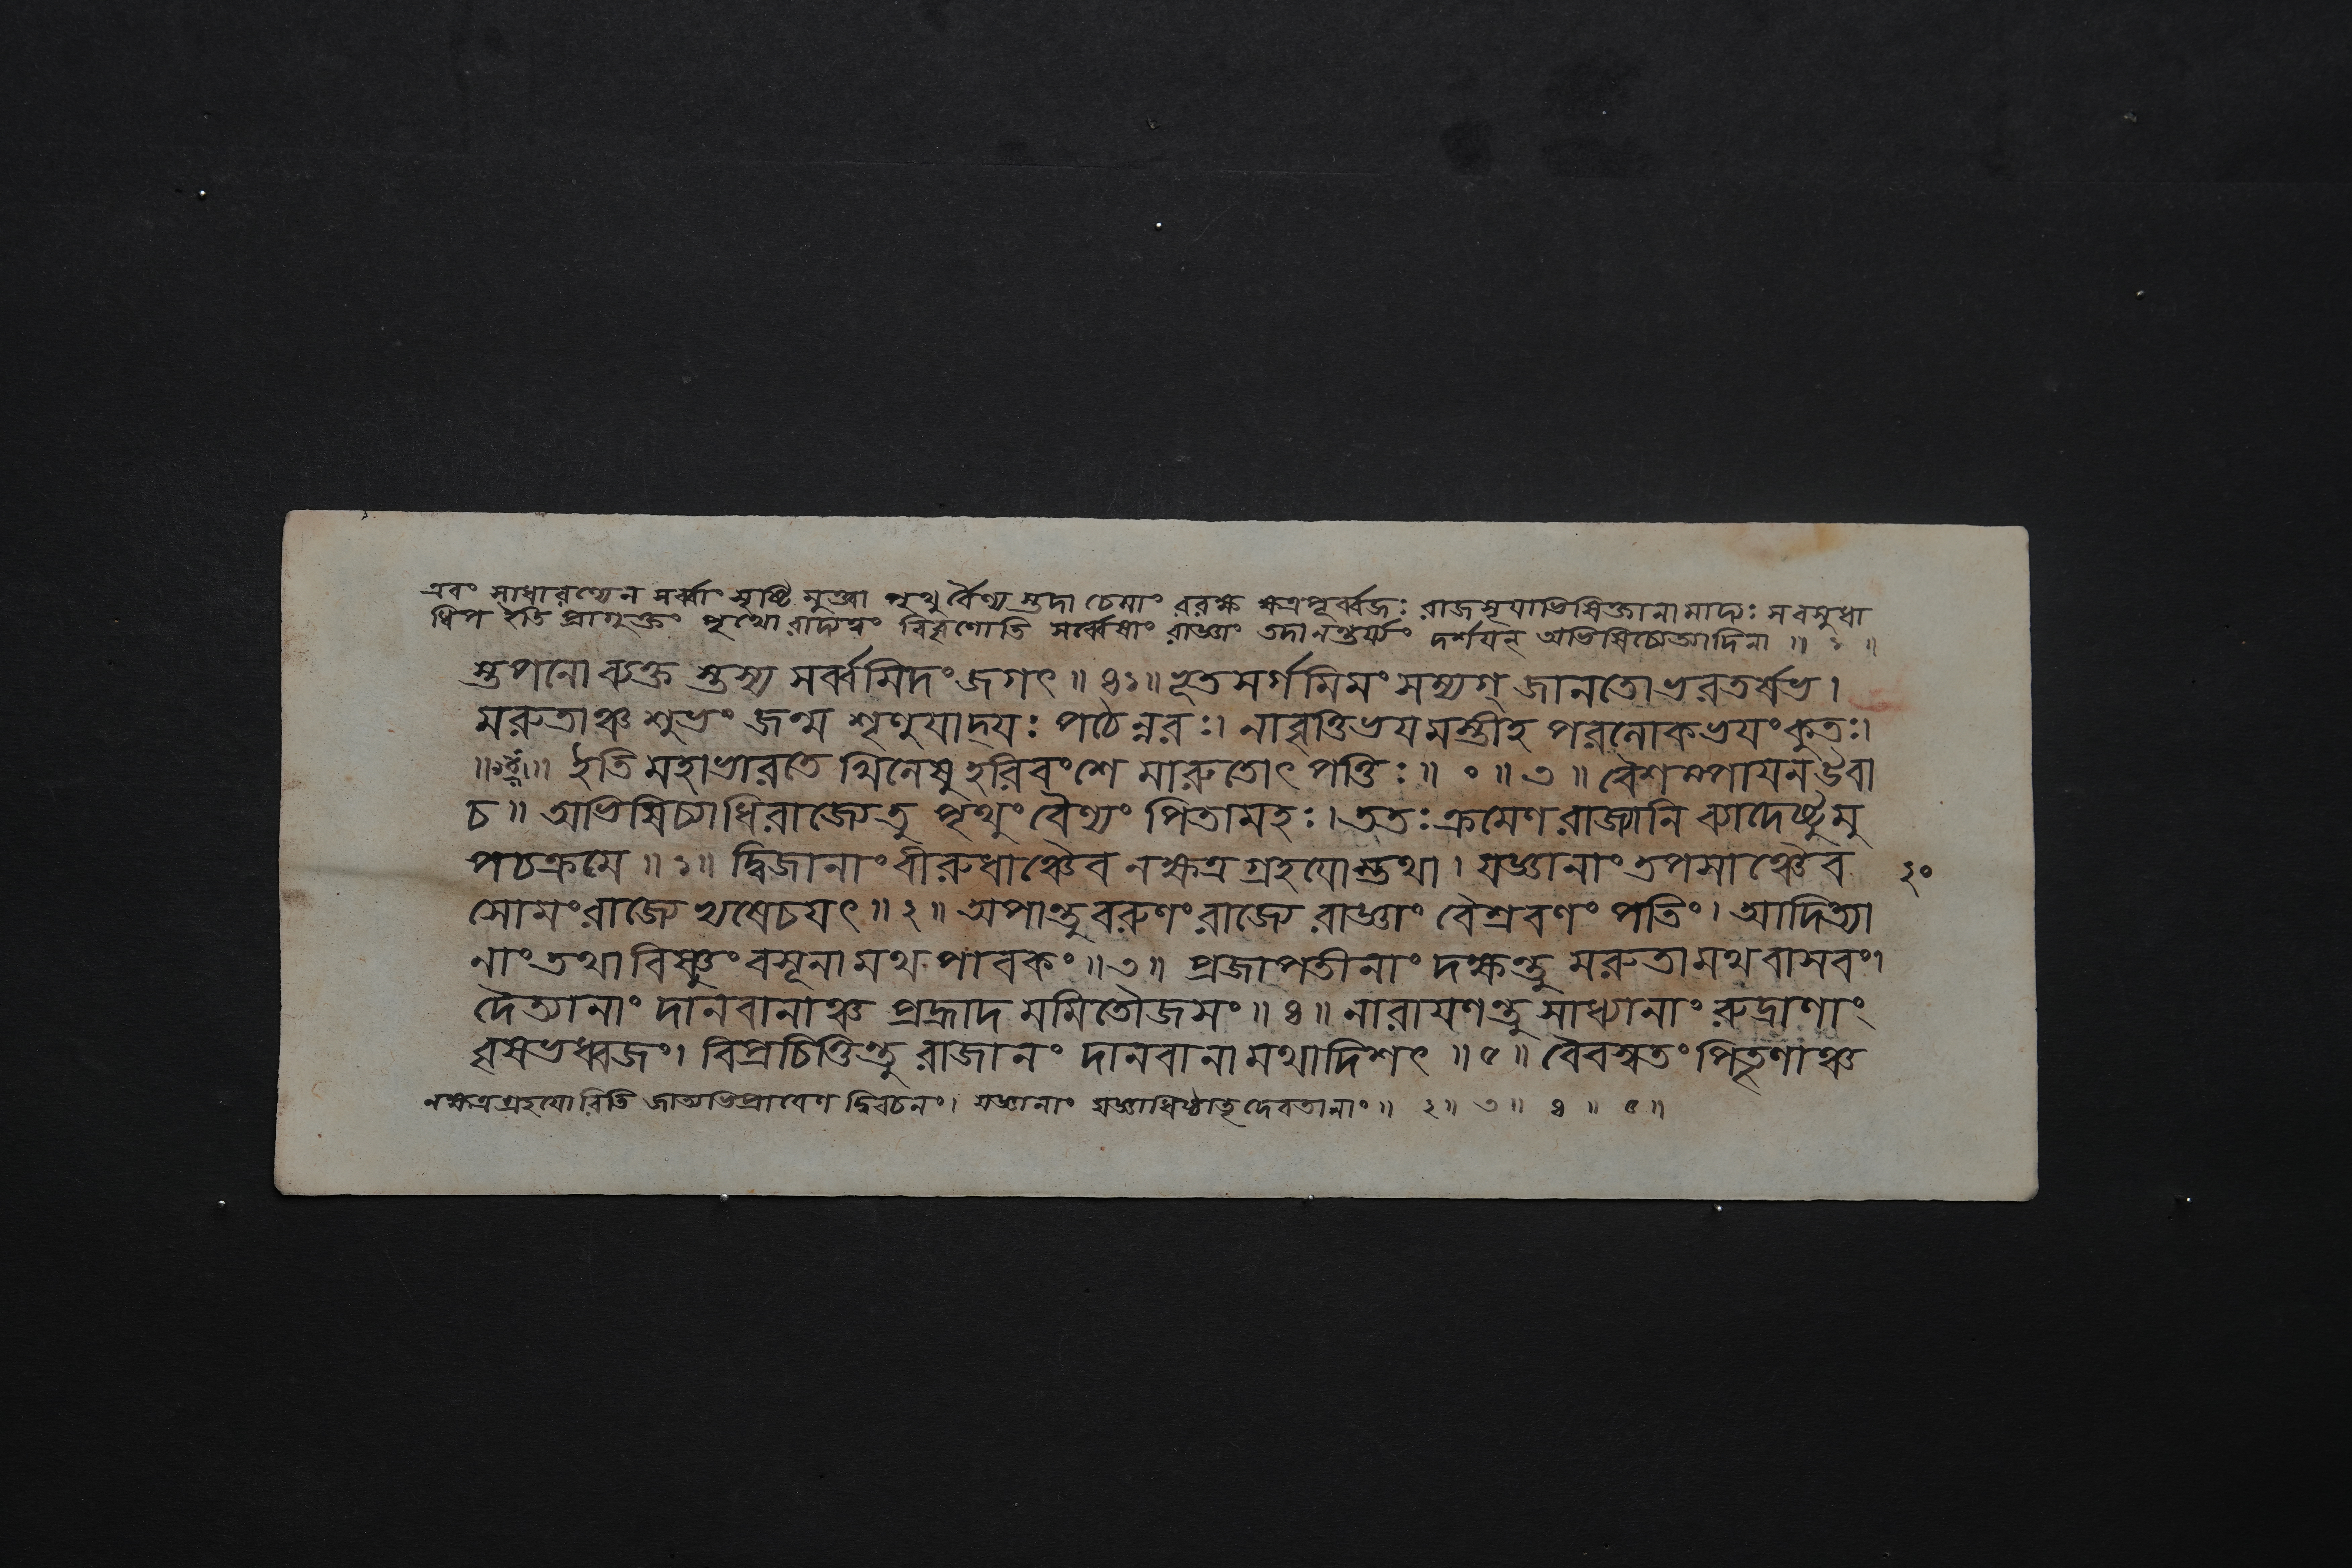 এবং সাধারণ্যেন সর্ব্বাং সৃষ্টি মুক্ত্বা পৃথু র্বৈণ্য স্তদা চেমাং ররক্ষ ক্ষত্রপূর্ব্বজঃ রাজসূয়াভিষিক্তানা মাদ্যঃ স বসুধা
ধিপ ইতি প্রাগুক্তং পৃথো রাদ্যত্বং বিবৃণোতি সর্ব্বেষাং রাজ্ঞাং তদানন্তর্য্যং দর্শয়ন্ অভিষিচ্যেত্যাদিনা ॥ ১ ॥
স্তপনো ব্যক্ত স্তস্য সর্ব্বমিদং জগৎ ॥ ৪১ ॥ ভূতসর্গমিমং সম্যগ্ জানতো ভরতর্ষভ ।
মরুতাঞ্চ শুভং জন্ম শৃণুয়াদ্যঃ পঠেন্নরঃ। নাবৃত্তিভয়মস্তীহ পরলোকভয়ং কুতঃ।
॥ ৪২ ॥ ইতি মহাভারতে খিলেষু হরিবংশে মারুতোৎপত্তিঃ ॥ ० ॥ ৩ ॥ বৈশম্পায়ন উবা
চ ॥ অভিষিচ্যাধিরাজ্যে তু পৃথুং বৈণ্যং পিতামহঃ। ততঃ ক্রমেণ রাজ্যানি ব্যাদেষ্টুমু
পচক্রমে ॥ ১ ॥ দ্বিজানাং বীরুধাঞ্চৈব নক্ষত্রগ্রহয়োস্তথা। যজ্ঞানাং তপসাঞ্চৈব
২০
সোমং রাজ্যেভ্যষেচয়ৎ ॥ ২ ॥ অপান্তু বরুণং রাজ্যে রাজ্ঞাং বৈশ্রবণং পতিং। আদিত্যা
নাং তথা বিষ্ণুং বসূনামথ পাবকং ॥ ৩ ॥ প্রজাপতীনাং দক্ষন্তু মরুতামথ বাসবং।
দৈত্যানাং দানবানাঞ্চ প্রহ্লাদমমিতৌজসং ॥ ৪ ॥ নারায়ণন্তু সাধ্যানাং রুদ্রাণাং
বৃষভধ্বজং। বিপ্রচিত্তিন্তু রাজানং দানবানামথাদিশৎ ॥ ৫ ॥ বৈবস্বতং পিতৄণাঞ্চ
নক্ষত্রগ্রহয়োরিতি জাত্যভিপ্রায়েণ দ্বিবচনং। যজ্ঞানাং যজ্ঞাধিষ্ঠাতৃদেবতানাং ॥ ২ ॥ ৩ ॥ ৪ ॥ ৫ ॥